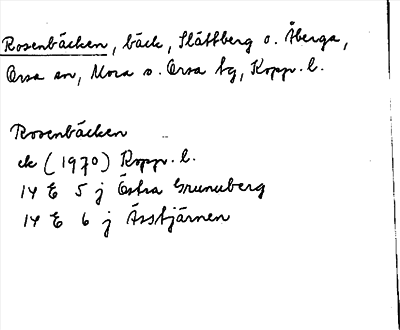 Rosenbäcken, bäck, Slättberg o. Åberga,
Orsa sn, Mora o. Orsa tg, Kopp. l.
Rosenbäcken
ek (1970) Kopp. l.
14 E 5 j Östra Grunuberg
14 E 6 j Åsstjärnen